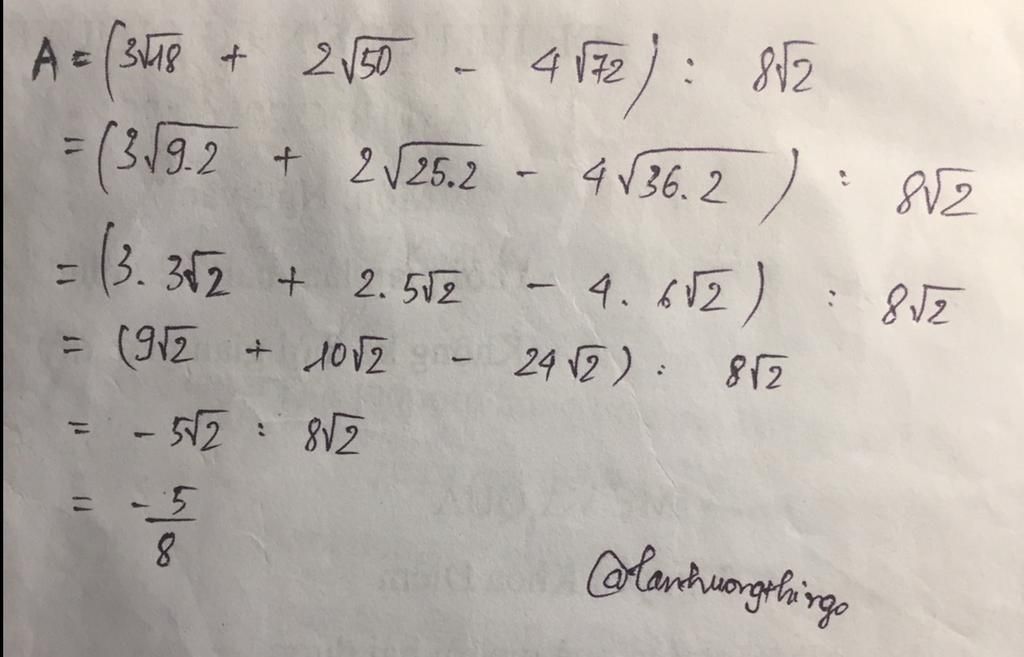 A = (3√18 + 2√50 - 4√72) : 8√2
= (3√9.2 + 2√25.2 - 4√36.2) : 8√2
= (3. 3√2 + 2. 5√2 - 4. 6√2) : 8√2
= (9√2 + 10√2 - 24√2) : 8√2
= -5√2 : 8√2
= -5/8
@lanhuongthingo